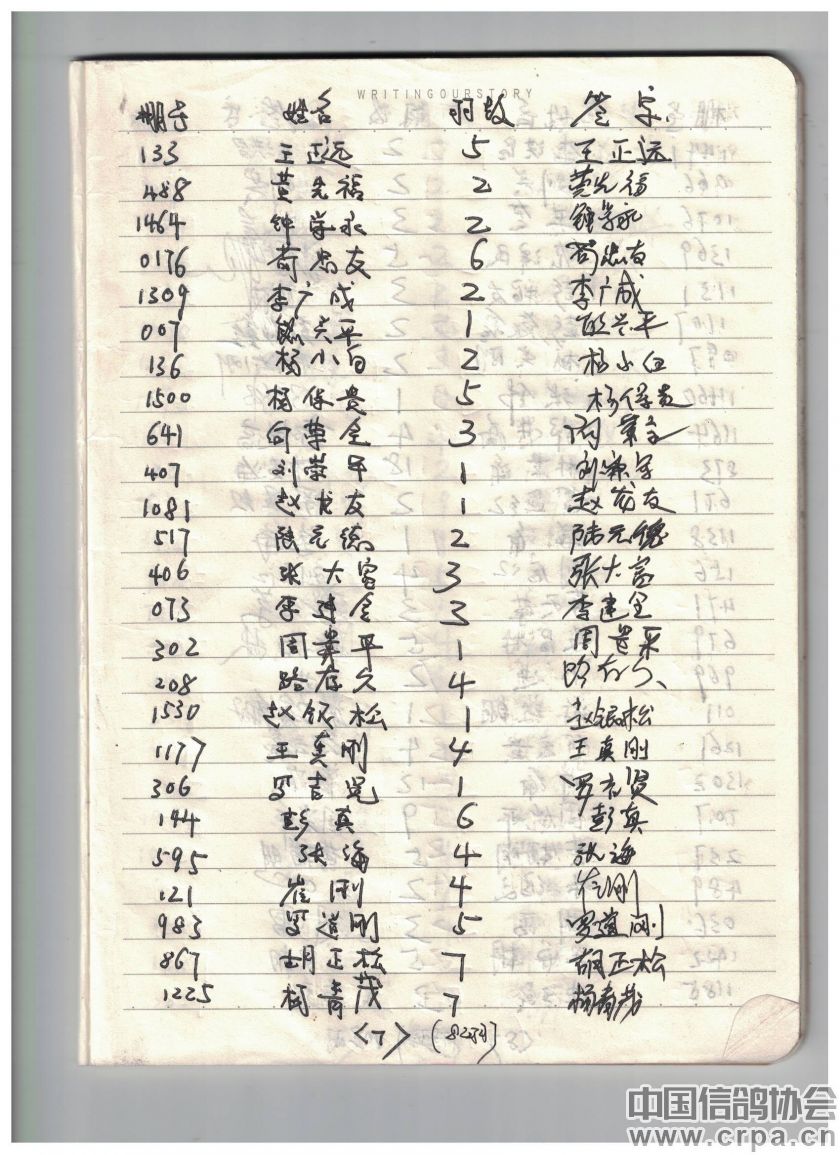 WRITINGOURSTORY
棚号 姓名 羽数 签字
133 王正远 5 王正远
488 黄先福 2 黄先福
1464 钟学永 2 钟学永
0176 苟忠友 6 苟忠友
1309 李广成 2 李广成
007 熊兴平 1
136 杨小白 2 杨小白
1500 杨保贵 5 杨保贵
641 向荣全 3 向荣全
407 刘荣平 1
1081 赵龙友 1 赵龙友
517 陆元德 2 陆元德
406 张大富 3 张大富
073 李建全 3 李建全
302 周贵平 1 周贵平
208 路存久 4
1530 赵银松 1 赵银松
1177 王真刚 4 王真刚
306 罗吉 1 罗
144 彭真 6 彭真
595 张海 4 张海
121 崔刚 4 崔刚
983 罗道刚 5 罗道刚
867 胡正松 7 胡正松
1225 杨青茂 7 杨青茂
<7> (82羽)
中国信鸽协会
www.crpa.cn